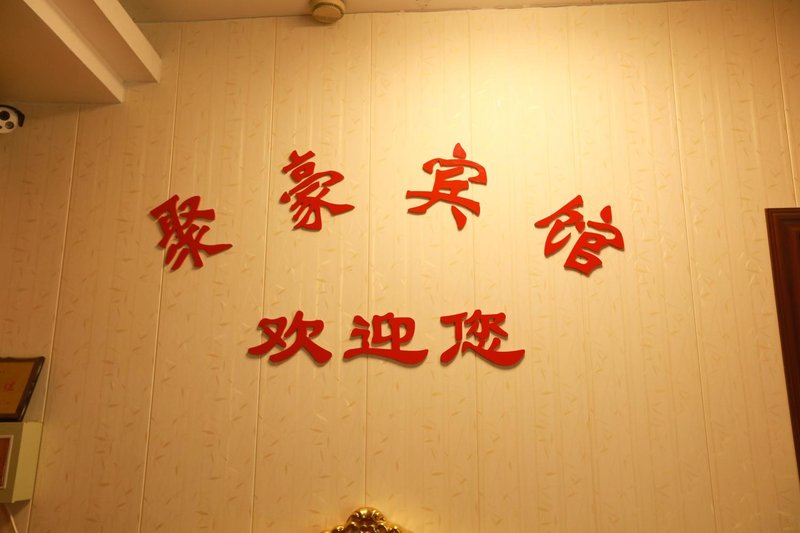 聚豪宾馆
欢迎您